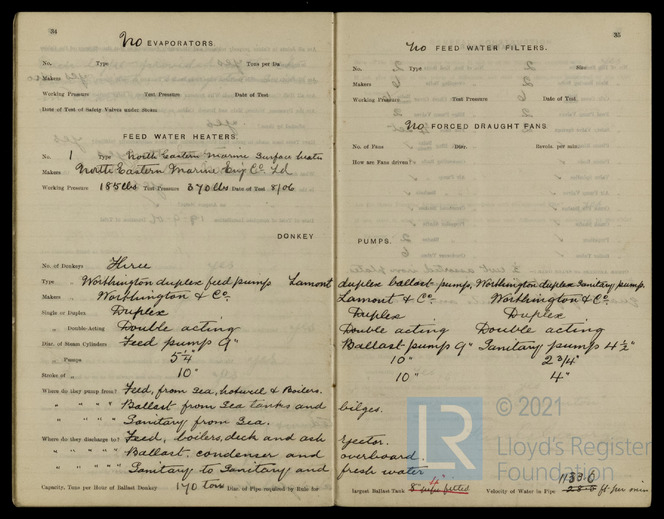 34
No EVAPORATORS.
No. Type Tons per Da
Makers
Working Pressure Test Pressure Date of Test
Date of Test of Safety Valves under Steam
FEED WATER HEATERS.
No. 1 Type North Eastern Marine Surface heater
Makers North Eastern Marine Eng Co. Ld
Working Pressure 185 lbs Test Pressure 370 lbs Date of Test 8/06
35
No FEED WATER FILTERS.
No. Type Size
Makers
Working Pressure Test Pressure Date of Test
No FORCED DRAUGHT FANS
No. of Fans Diar. Revols. per min.
How are Fans driven?
DONKEY PUMPS.
No. of Donkeys Three
Type Worthington duplex feed pump Lamont duplex ballast pump, Worthington duplex Sanitary pump.
Makers Worthington & Co. Lamont & Co. Worthington & Co.
Single or Duplex Duplex Duplex Duplex
" Double-Acting Double acting Double acting Double acting
Diar. of Steam Cylinders Feed pump 9" Ballast pump 9" Sanitary pumps 4½"
" Pumps 5¼" 10" 2¾"
Stroke of " 10" 10" 4"
Where do they pump from? Feed, from Sea, hotwell & Boilers.
" " " " Ballast from Sea tanks and bilges.
" " " " Sanitary from Sea.
Where do they discharge to? Feed, boilers, deck and ash ejector.
" " " " Ballast, condenser and overboard.
" " " " Sanitary to Sanitary and fresh water
Capacity, Tons per Hour of Ballast Donkey 140 tons Diar. of Pipe required by Rule for largest Ballast Tank Velocity of Water in Pipe ft per min
© 2021
LR
Lloyd's Register
Foundation